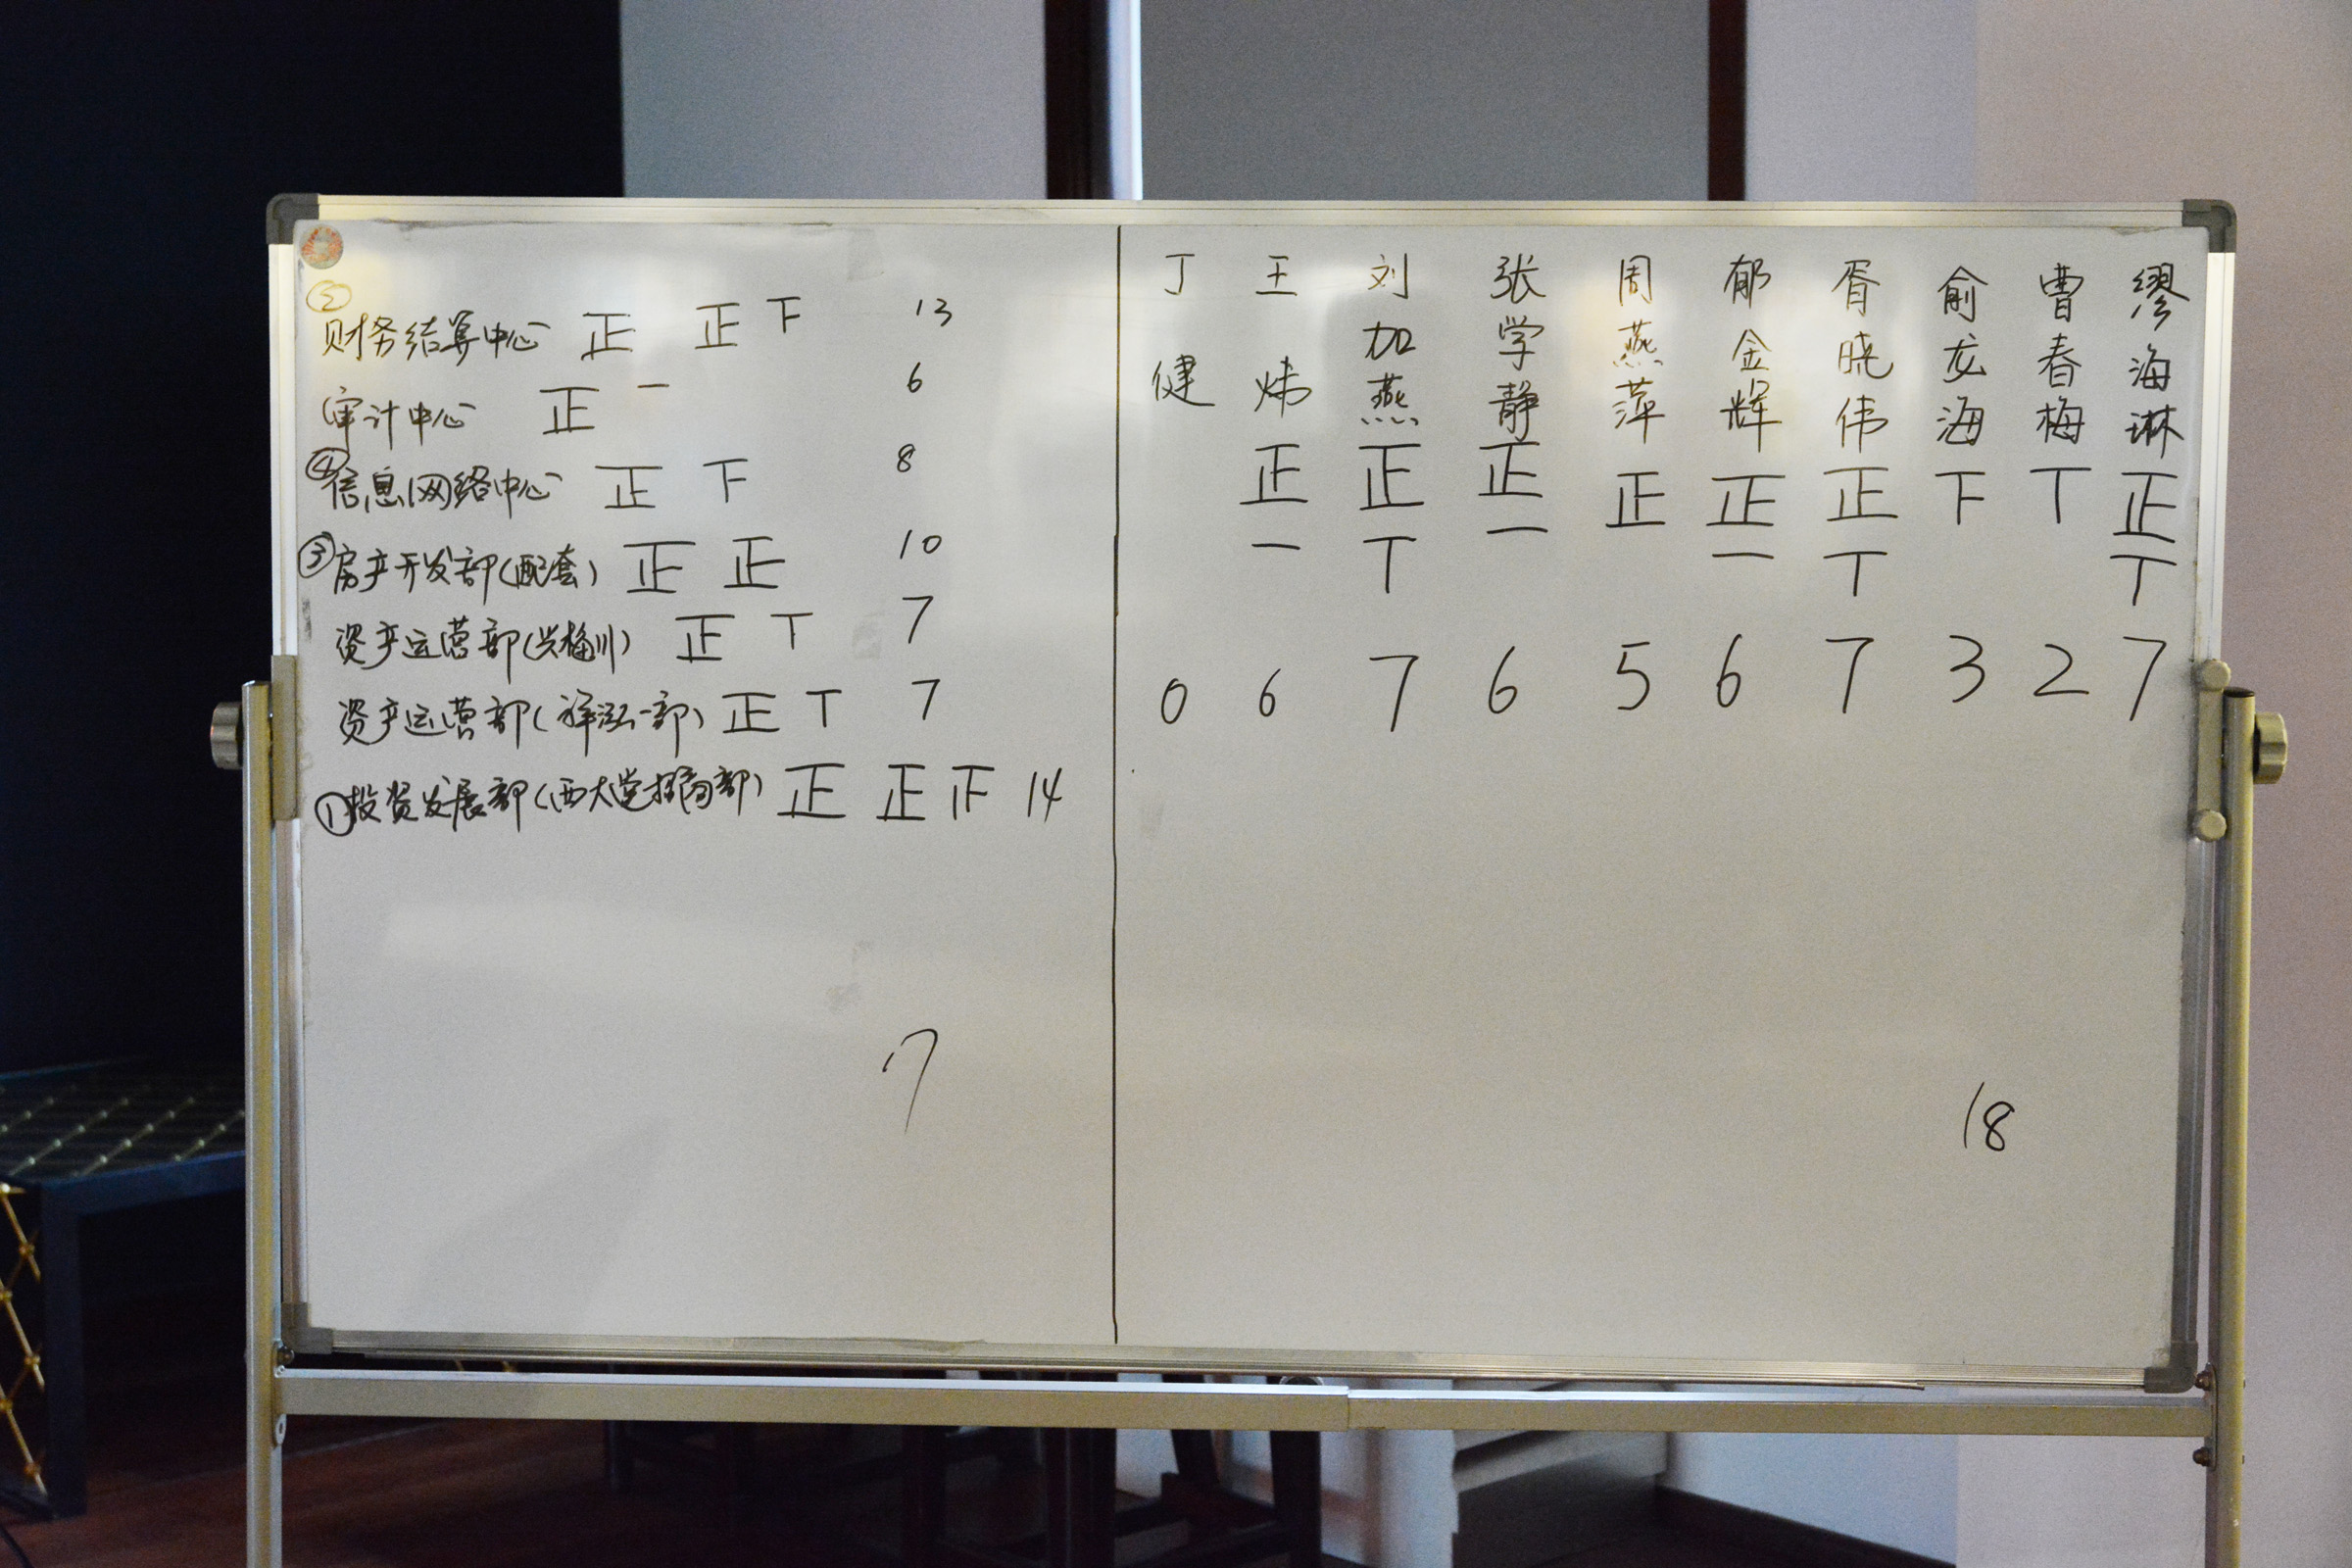 ②
财务结算中心 正 正 下 13
审计中心 正 一 6
④信息网络中心 正 下 8
③房产开发部(配套) 正 正 10
资产运营部(兴梅川) 正 丅 7
资产运营部(祥泓一部) 正 丅 7
①投资发展部(西大堂招商部) 正 正 正 14
7
丁健 0
王炜 正 一 6
刘加燕 正 丅 7
张学静 正 一 6
周燕萍 正 5
郁金辉 正 一 6
胥晓伟 正 丅 7
俞龙海 下 3
曹春梅 丅 2
缪海琳 正 丅 7
18